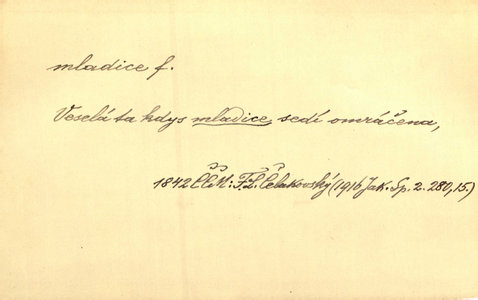 mladice f.
Veselá ta kdys mladice, sedí omráčena,
1842 ČČM: F. L. Čelakovský (1916 Jak. Sp. 2. 280, 15.)